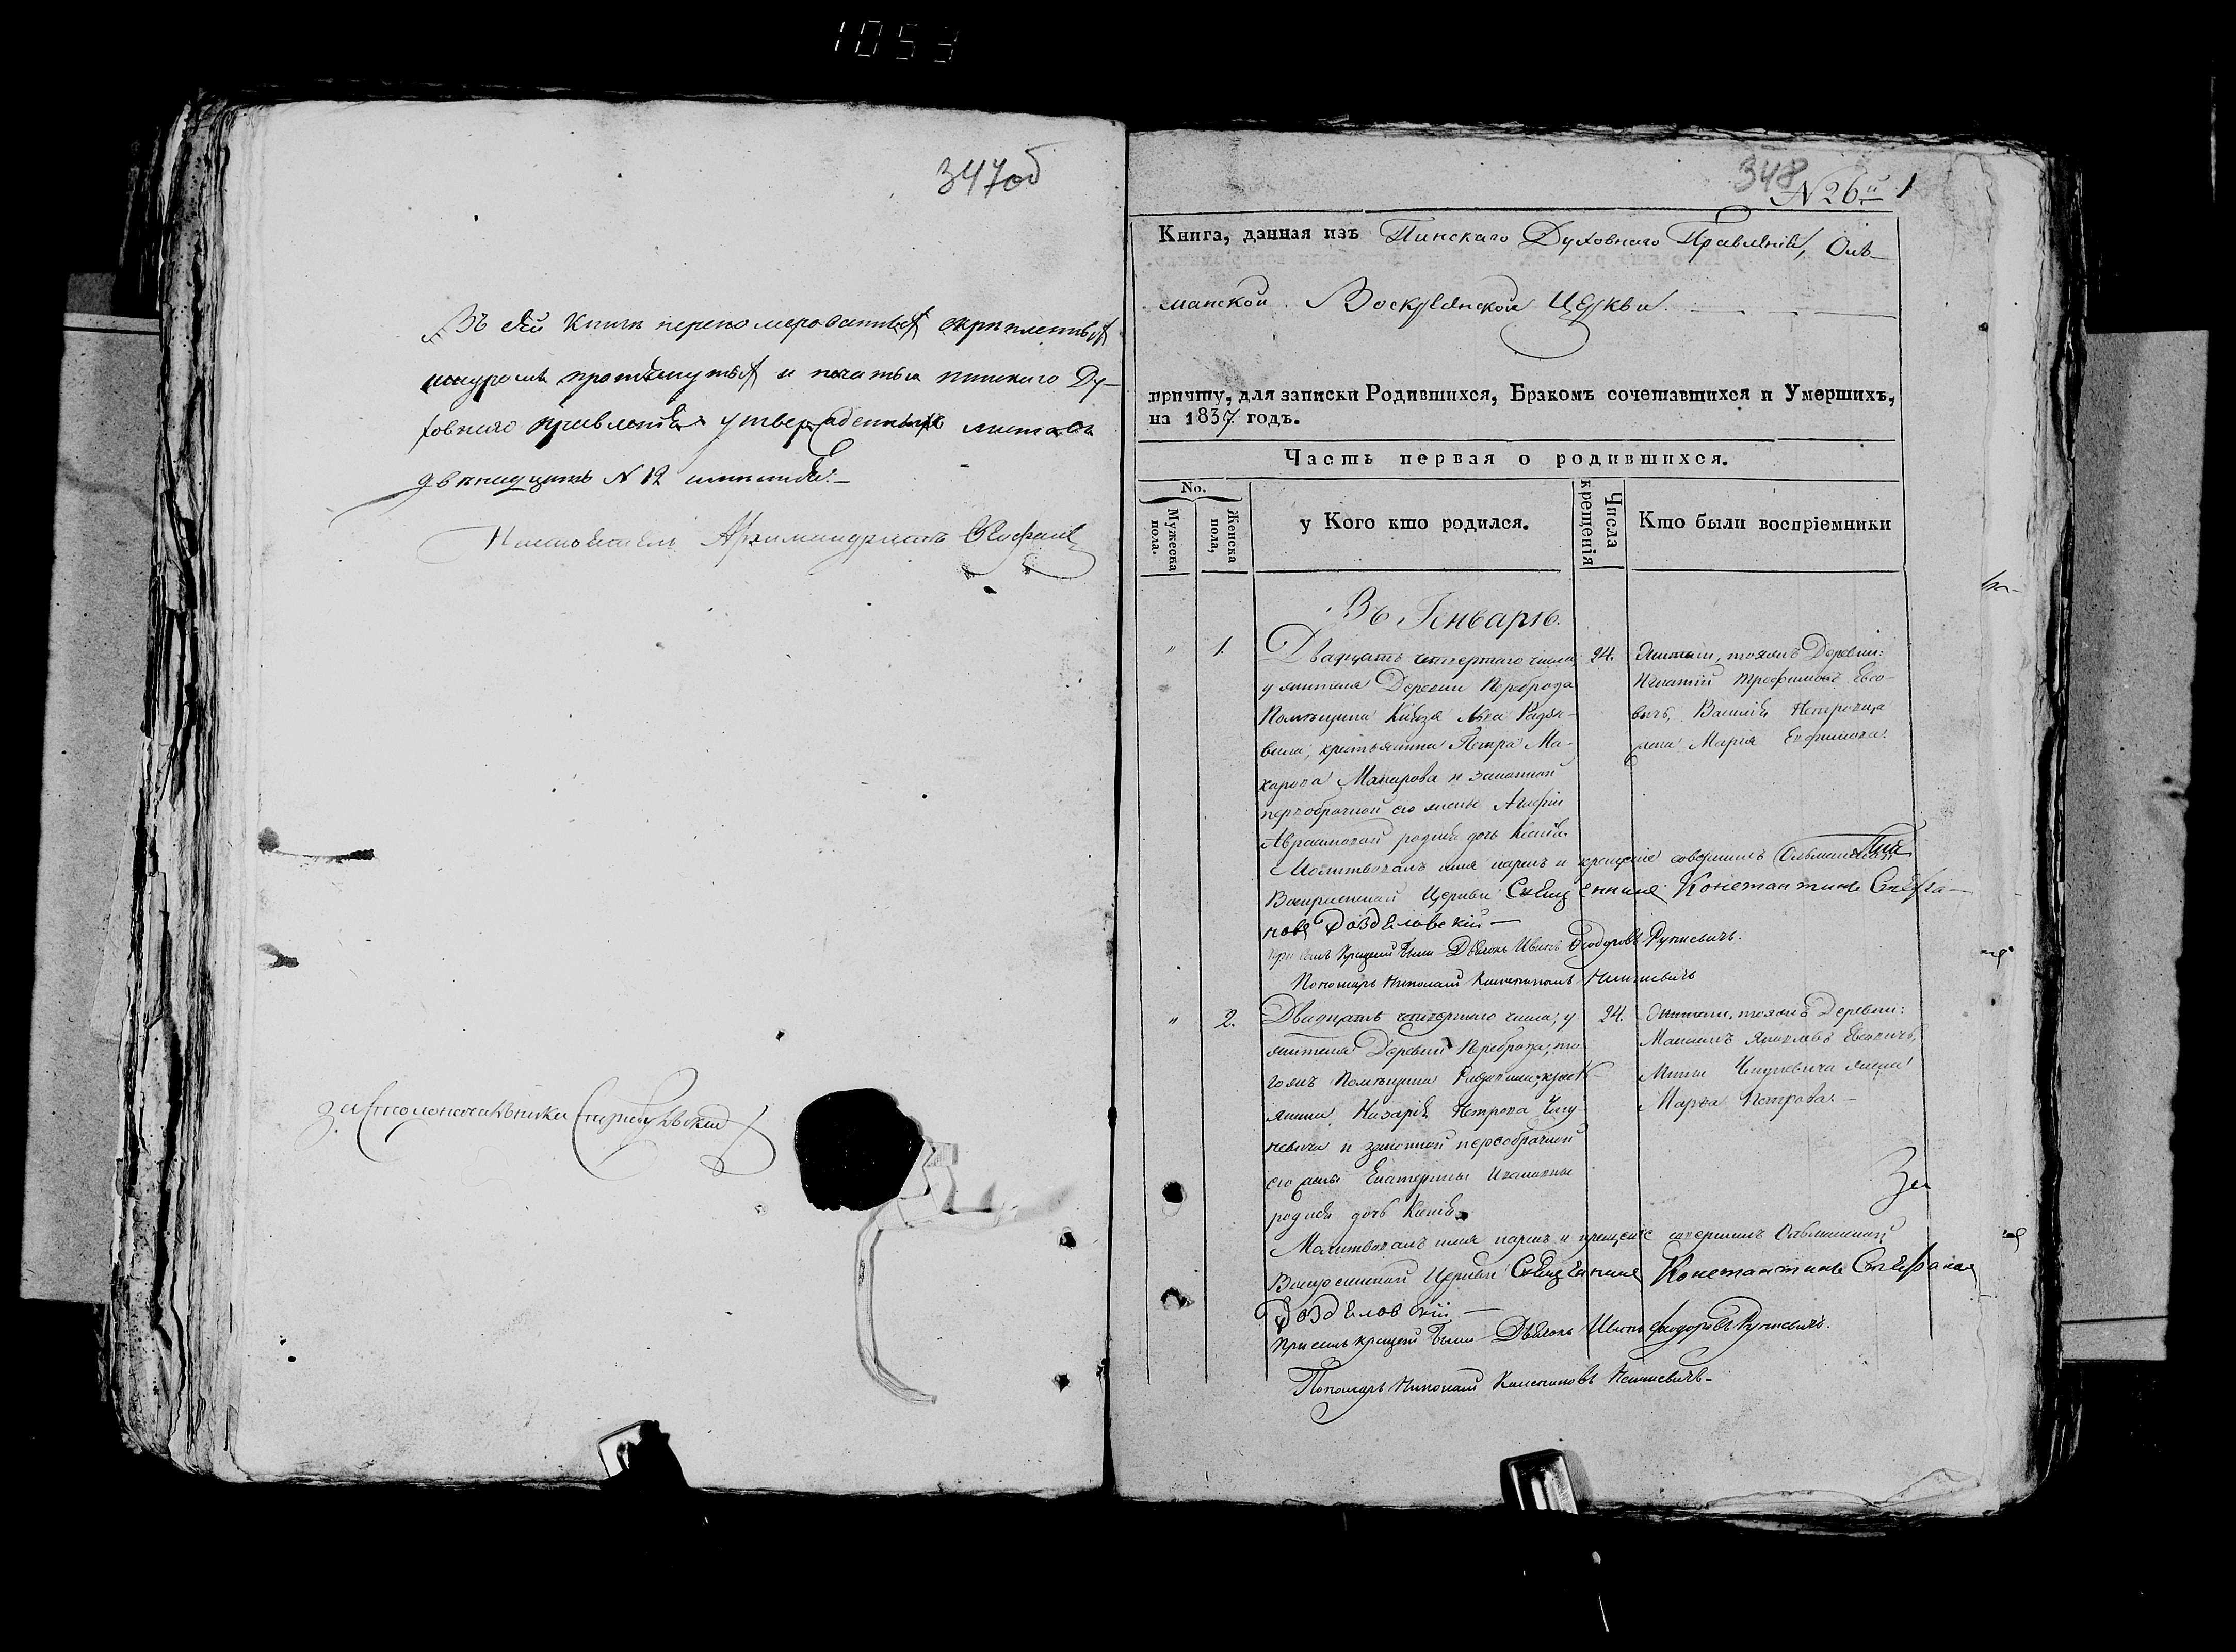 1053
347об
Въ сей Книгѣ перенумерованныхъ скрѣпленныхъ
шнуромъ протянутыхъ и печатью пинскаго Ду-
ховнаго правленія утвержденныхъ листовъ
двѣнадцать N 12
Архимандритъ
за Столоначальника
348
N 26й 1
Книга, данная изъ Пинскаго Духовнаго Правленія, Оль-
манской Воскресенской Церкви.
причту, для записки Родившихся, Бракомъ сочетавшихся и Умершихъ,
на 1837 годъ.
Часть первая о родившихся.
No.
Мужеска пола.
Женска пола,
у Кого кто родился.
Числа крещенія
Кто были воспріемники
Въ Генварѣ.
" 1.
Двадцать четвертаго числа,
у жителя Деревни Переброда
Помѣщика Князя Льва Радзи-
вила, крестьянина Петра Ма-
карова Макарова и законной
первобрачной его жены Агафіи
Авраамовой родися дочь Ксенія
24.
Жители, тояжъ Деревни:
Игнатій Трофимовъ Евсо-
вичъ, Василія Петровича
жена Марія Евфимова.
Молитвовалъ имя нарекъ и крещеніе совершилъ Ольманской
Воскресенской Церкви Священникъ Константинъ Стефа-
новъ Доздѣловскій
При семъ Крещеніи были Дьяконъ Иванъ Ѳеодоровъ Рункевичъ.
Пономарь Николай
" 2.
Двадцать четвертаго числа, у
жителя Деревни Переброда, то-
гожъ Помѣщика Радзивила, кресть-
янина Назарія Петрова Чигу-
невича и законной первобрачной
его жены Екатерины Ивановны
родися дочь Ксенія
24.
Жители, тояжъ Деревни:
Максимъ Яковлевъ Евсовичъ,
жена
Марѳа Петрова.
За
Молитвовалъ имя нарекъ и крещеніе совершилъ Ольманской
Воскресенской Церкви Священникъ Константинъ Стефановъ
Доздѣловскій
При семъ крещеніи были Дьяконъ Иванъ Ѳеодоровъ Рункевичъ.
Пономарь Николай